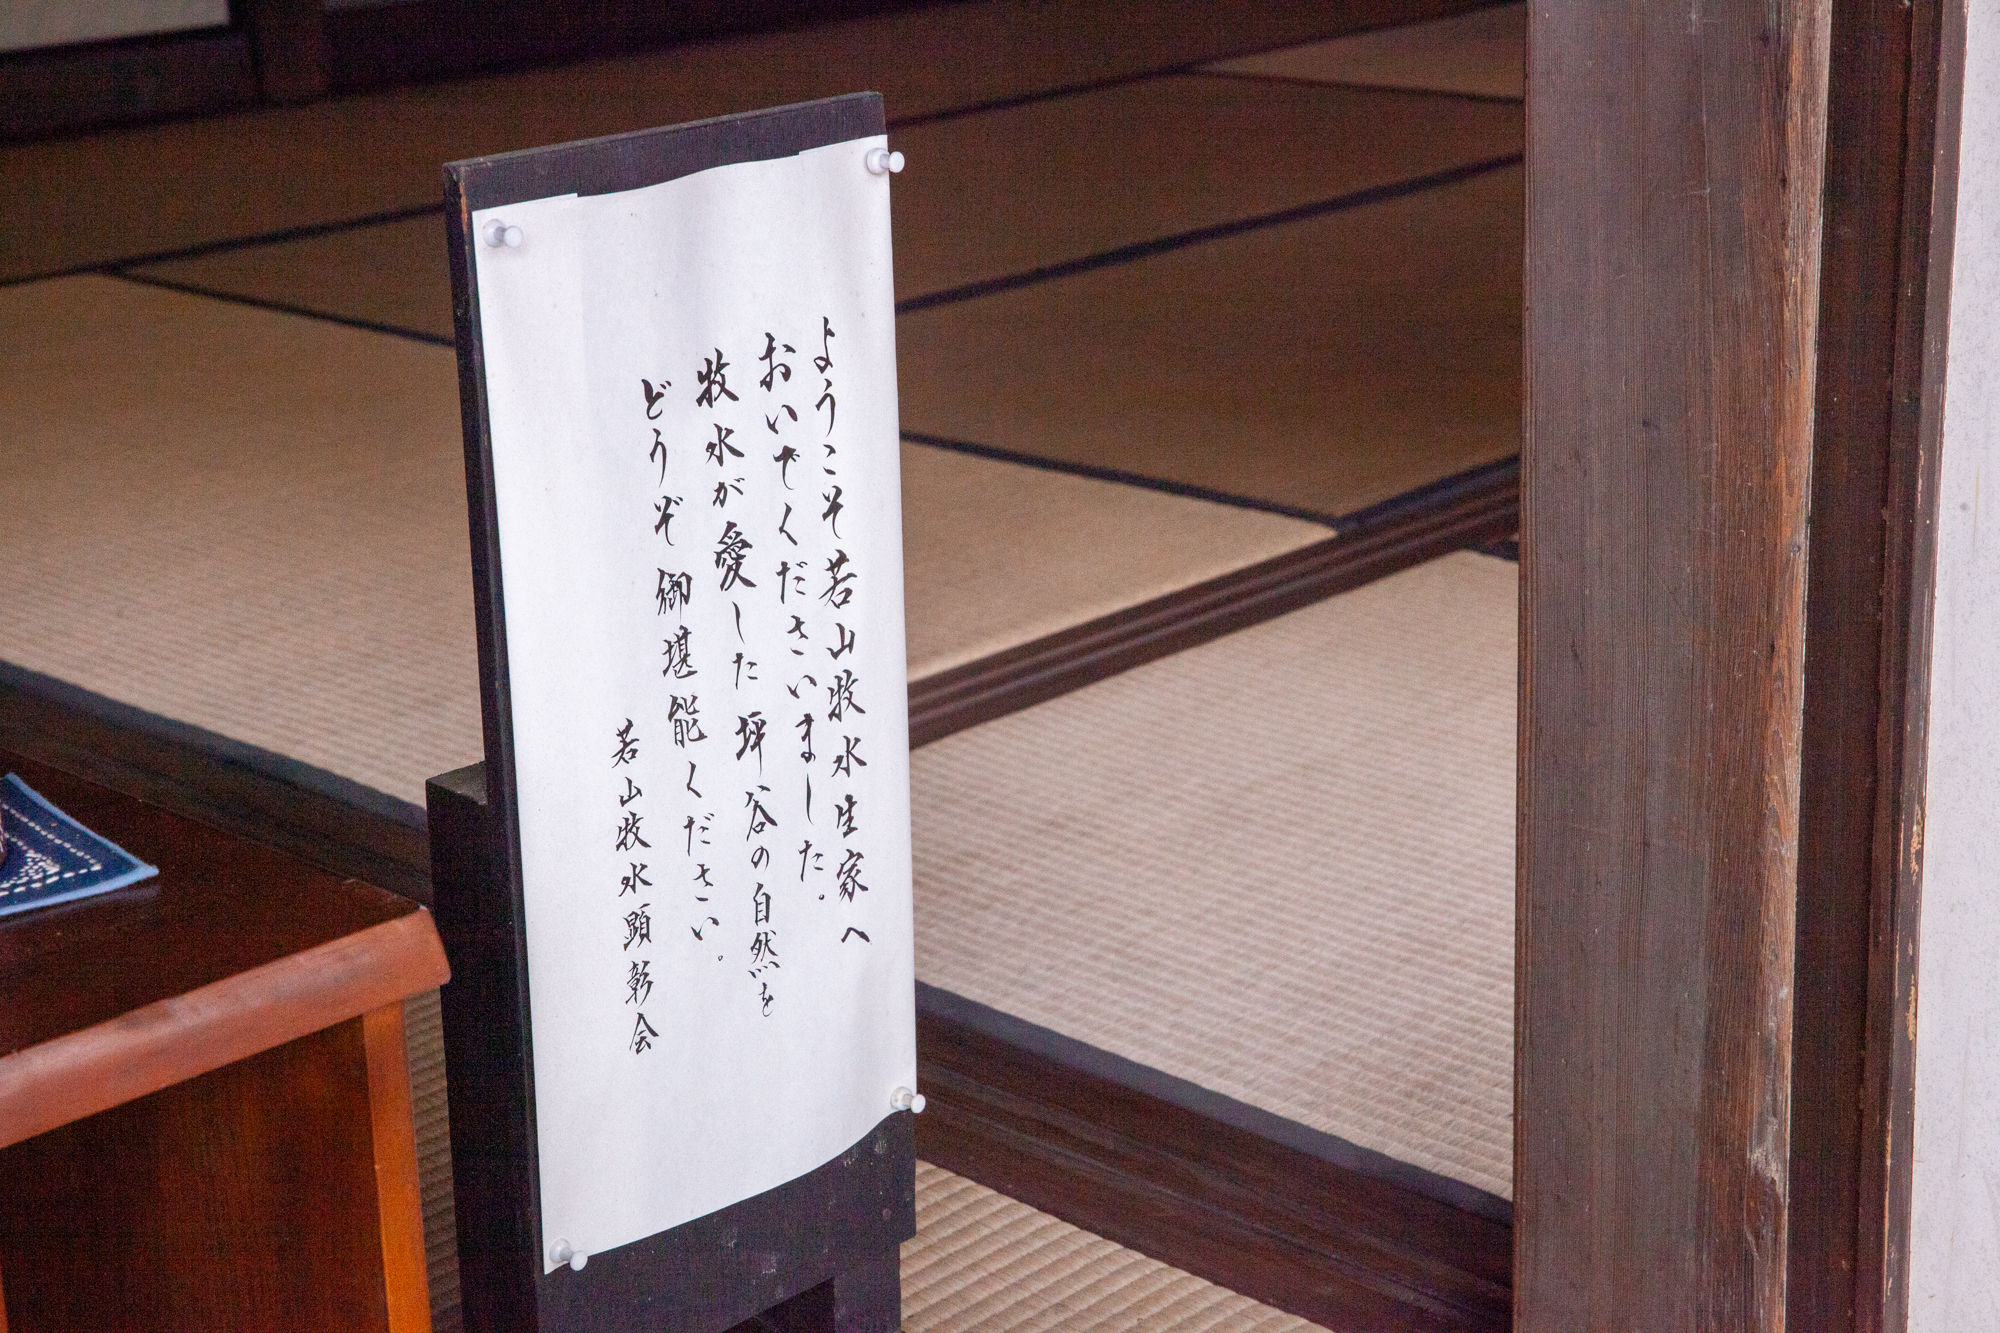 ようこそ若山牧水生家へ
おいでくださいました。
牧水が愛した坪谷の自然を
どうぞ御堪能ください。
若山牧水顕彰会